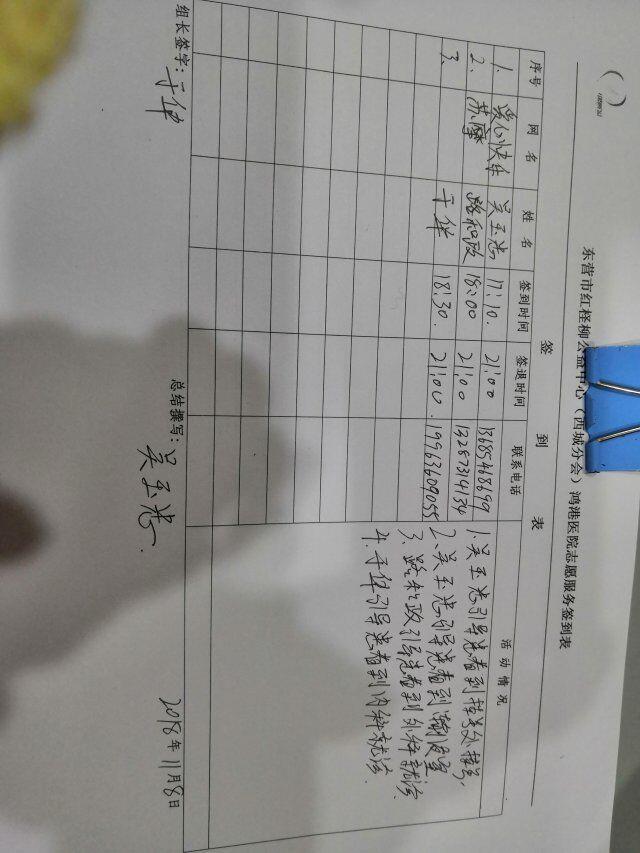 东营市红柽柳公益中心（西城分会）鸿港医院志愿服务签到表
签 到 表
序号 网 名 姓 名 签到时间 签退时间 联系电话 活 动 情 况
1. 爱心快车 吴玉忠 17:10. 21:00 13685468699
2. 苏摩 路和政 18:00 21:00 13287314134
3. 于华 18:30. 21:00. 19963609055
1.吴玉忠引导患者到挂号处挂号,
2、吴玉忠引导患者到输液室
3、路和政引导患者到外科就诊
4.于华引导患者到内科就诊.
组长签字: 于华 总结撰写: 吴玉忠. 2018年11月8日